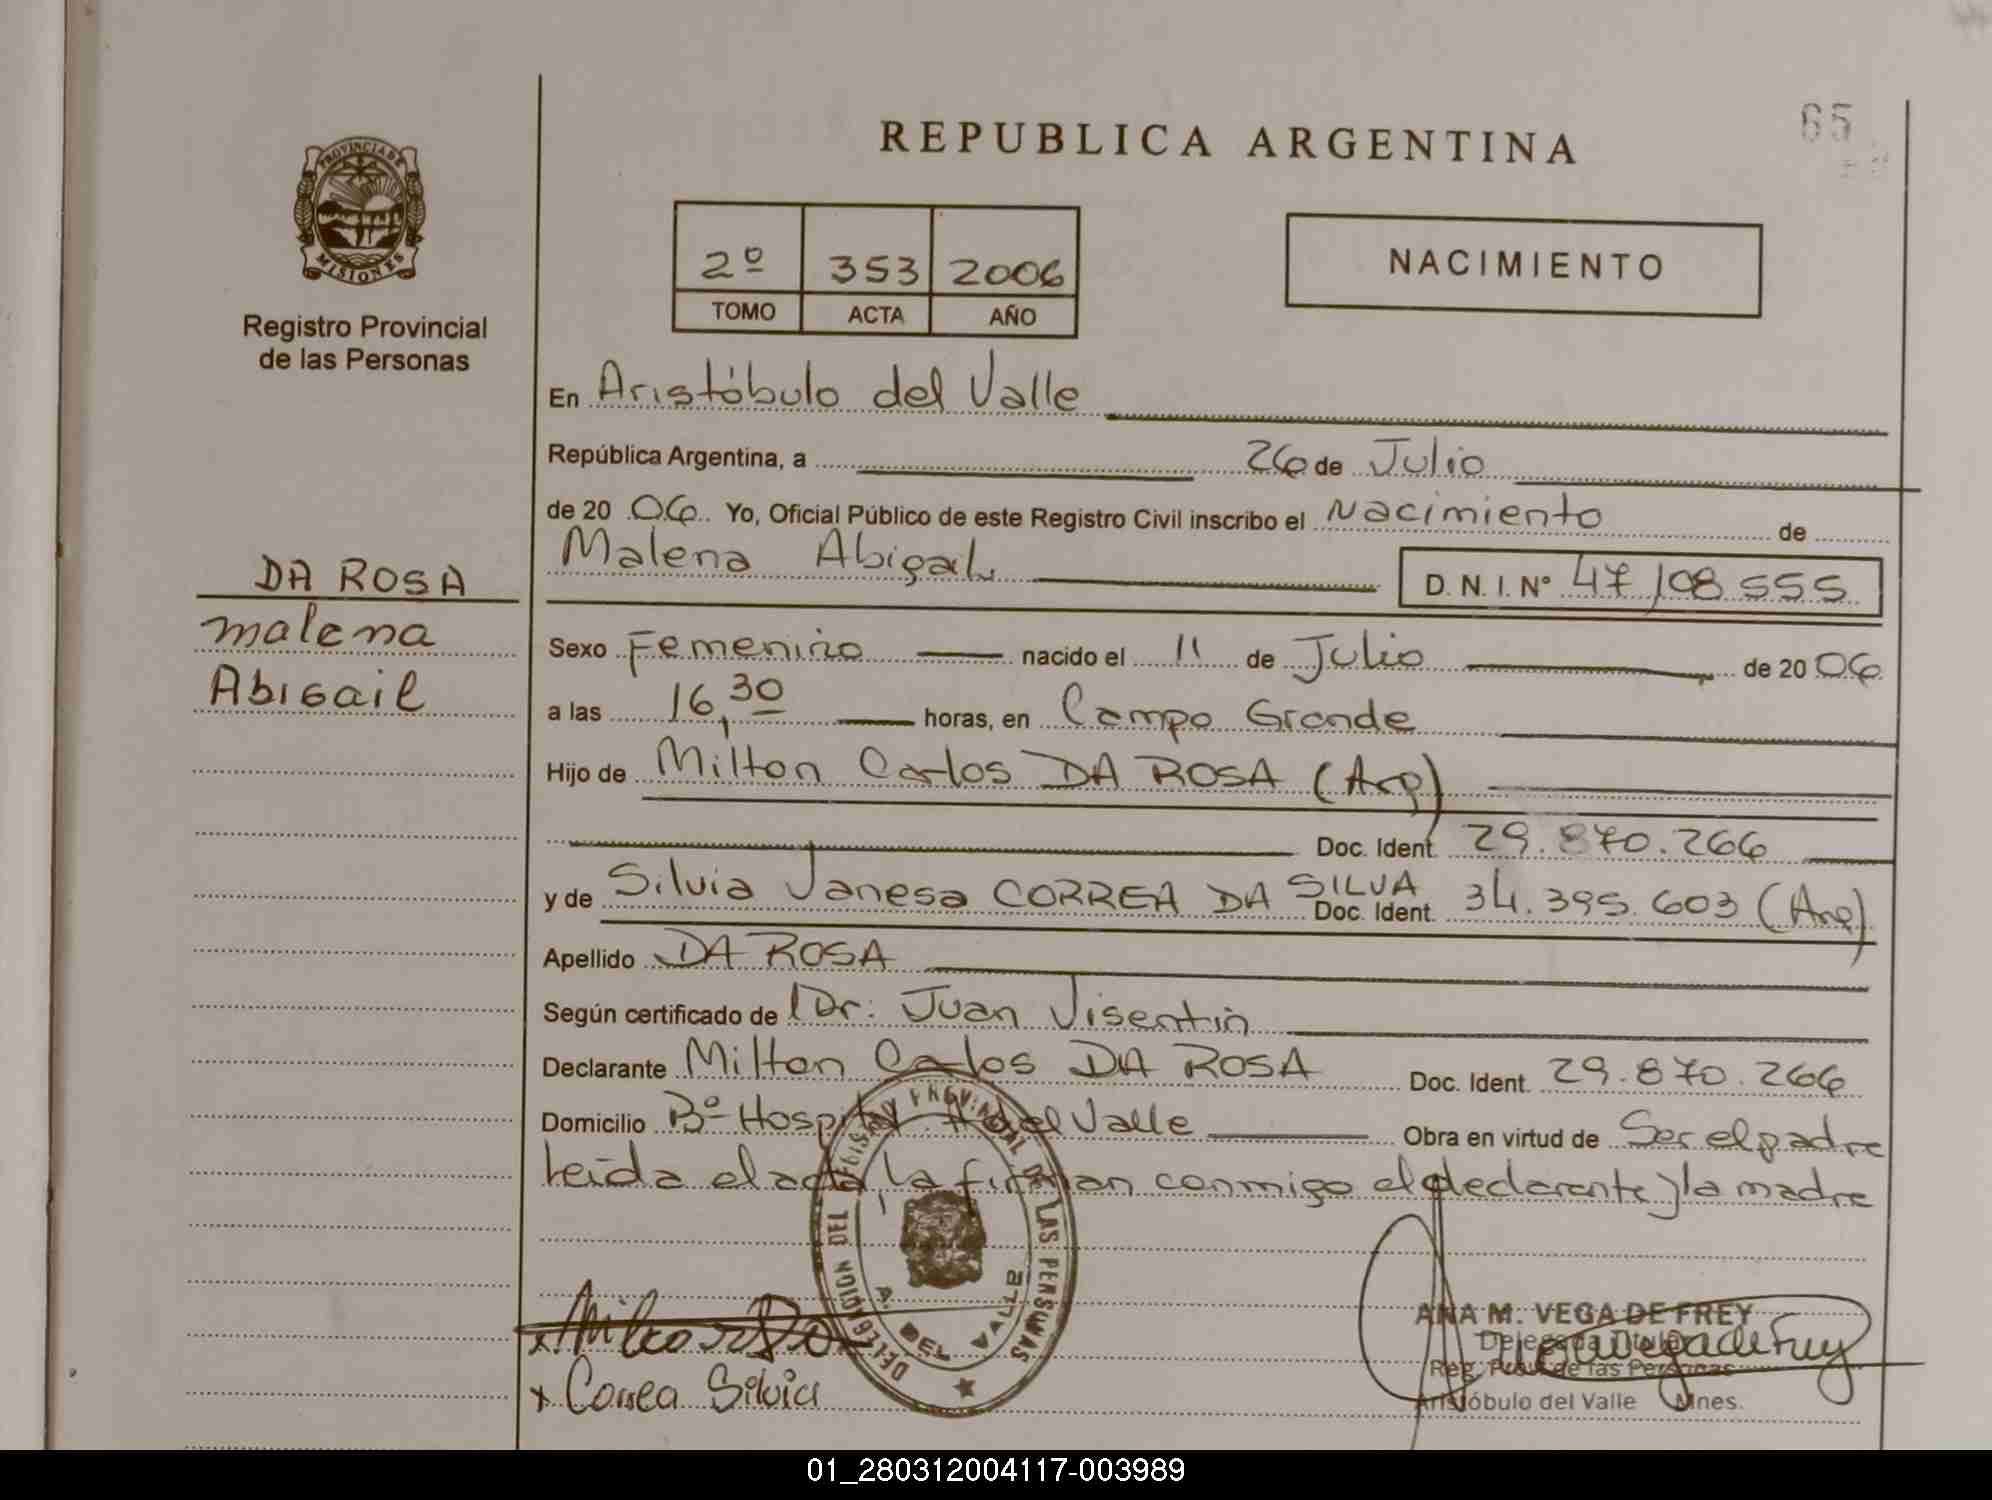 65
REPUBLICA ARGENTINA
PROVINCIA DE
MISIONES
Registro Provincial
de las Personas
2º 353 2006
TOMO ACTA AÑO
NACIMIENTO
En Aristóbulo del Valle
República Argentina, a 26 de Julio
de 20 06 Yo, Oficial Público de este Registro Civil inscribo el Nacimiento de
Malena Abigail D. N. I. Nº 47.108.555
DA ROSA
Malena
Abigail
Sexo Femenino nacido el 11 de Julio de 20 06
a las 16,30 horas, en Campo Grande
Hijo de Milton Carlos DA ROSA (Arg)
Doc. Ident. 29.870.266
y de Silvia Vanesa CORREA DA SILVA Doc. Ident. 34.395.603 (Arg)
Apellido DA ROSA
Según certificado de Dr: Juan Visentin
Declarante Milton Carlos DA ROSA Doc. Ident. 29.870.266
Domicilio Bº Hospital A del Valle Obra en virtud de Ser el padre
Leida el acta, la firman conmigo el declarante y la madre
DELEGACION DEL REGISTRO PROVINCIAL DE LAS PERSONAS
A. DEL VALLE
x Correa Silvia
ANA M. VEGA DE FREY
Delegada Titular
Reg. Prov. de las Personas
Aristóbulo del Valle Mnes.
01_280312004117-003989